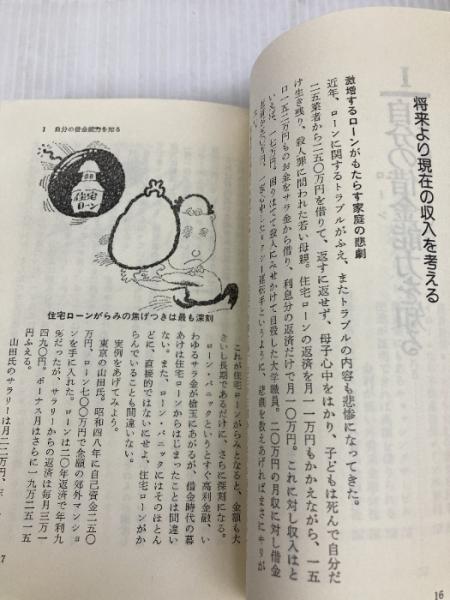 将来より現在の収入を考える
激増するローンがもたらす家庭の悲劇
近年、ローンに関するトラブルがふえ、またトラブルの内容も悲惨になってきた。
二五業者から二五〇万円を借りて、返すに返せず、母子心中をはかり、子どもは死んで自分だ
け生き残り、殺人罪に問われた若い母親。住宅ローンの返済を月一一万円もかかえながら、一五
〇〜一五二万円ものお金をサラ金から借り、利息分の返済だけで月一〇万円。これに対し収入はと
いえば、一七万円。困りはてて殺人にみせかけて自殺した大学職員。二〇万円の月収に対し借金
というように、悲劇を数えあげればまさにキリが
16
I 自分の借金能力を知る
住宅ローン
住宅ローンがらみの焦げつきは最も深刻
これが住宅ローンがらみとなると、金額も大
きいし長期であるだけに、さらに深刻になる。
ローン・パニックというとすぐ高利金融、い
わゆるサラ金が槍玉にあがるが、借金時代の幕
あけは住宅ローンからはじまったことは間違い
ない。また、ローン・パニックにはそのほとん
どに、直接的ではないにせよ、住宅ローンがか
らんでいることも間違いない。
実例をあげてみよう。
東京の山田氏。昭和四八年に自己資金二五〇
万円、ローン七〇〇万円で念願の郊外マンショ
ンを手に入れた。ローンは二〇年返済で年利九
%だったが、サラリーからの返済は毎月三万一
四九〇円。ボーナス月はさらに一九万二五一五
円ふえる。
山田氏のサラリーは月二二万円、ボ
7